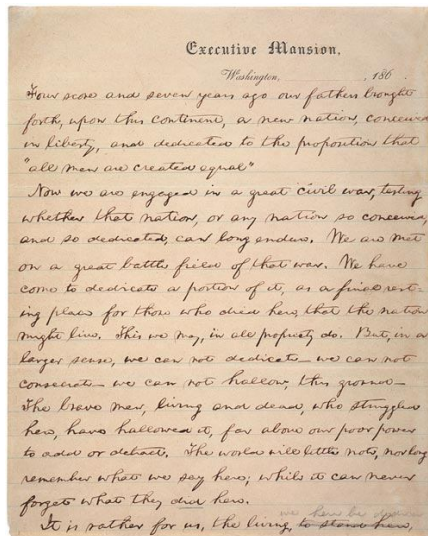 Executive Mansion,
Washington, , 186 .
Four score and seven years ago our fathers brought
forth, upon this continent, a new nation, conceived
in liberty, and dedicated to the proposition that
"all men are created equal"
Now we are engaged in a great civil war, testing
whether that nation, or any nation so conceived,
and so dedicated, can long endure. We are met
on a great battle field of that war. We have
come to dedicate a portion of it, as a final rest-
ing place for those who died here, that the nation
might live. This we may, in all propriety do. But, in a
larger sense, we can not dedicate — we can not
consecrate — we can not hallow, this ground —
The brave men, living and dead, who struggled
here, have hallowed it, far above our poor power
to add or detract. The world will little note, nor long
remember what we say here; while it can never
forget what they did here.
we here be dedica
It is rather for us, the living, to stand here,